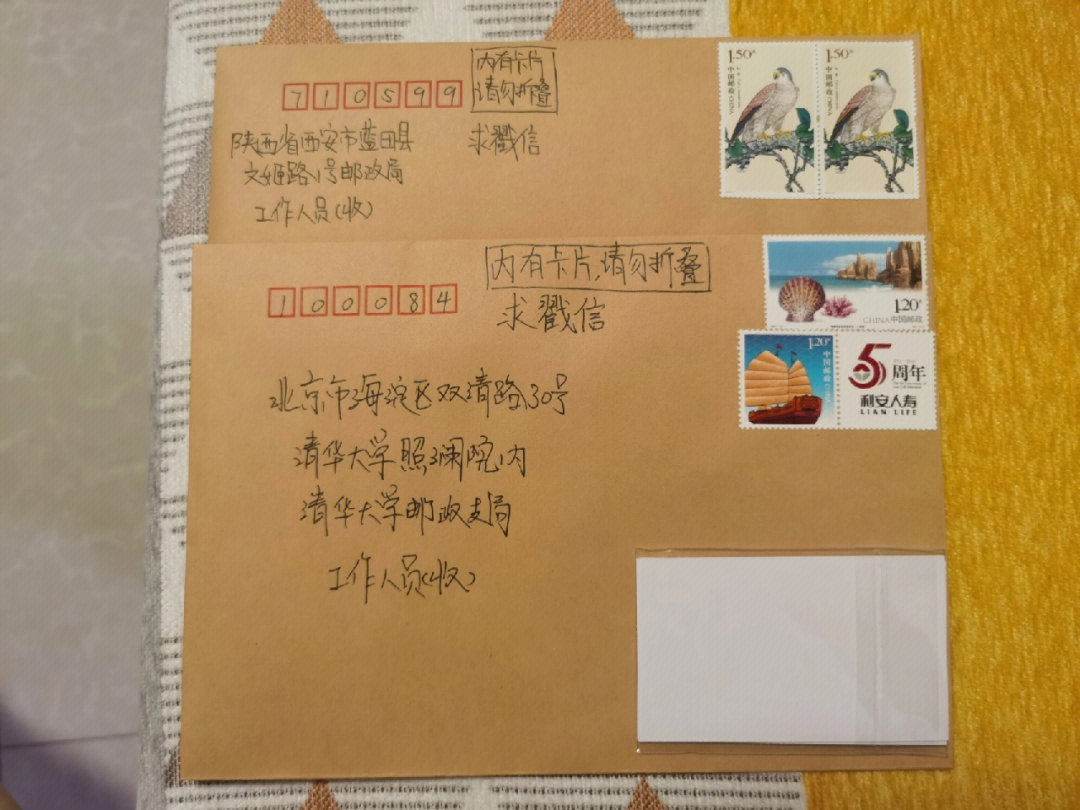 710599
内有卡片
请勿折叠
求戳信
陕西省西安市蓝田县
文姬路1号邮政局
工作人员(收)
1.50元
中国邮政
CHINA
1.50元
中国邮政
CHINA
100084
内有卡片,请勿折叠
求戳信
北京市海淀区双清路30号
清华大学照澜院内
清华大学邮政支局
工作人员(收)
1.20元
CHINA 中国邮政
1.20元
中国邮政
5周年
利安人寿
LIAN LIFE